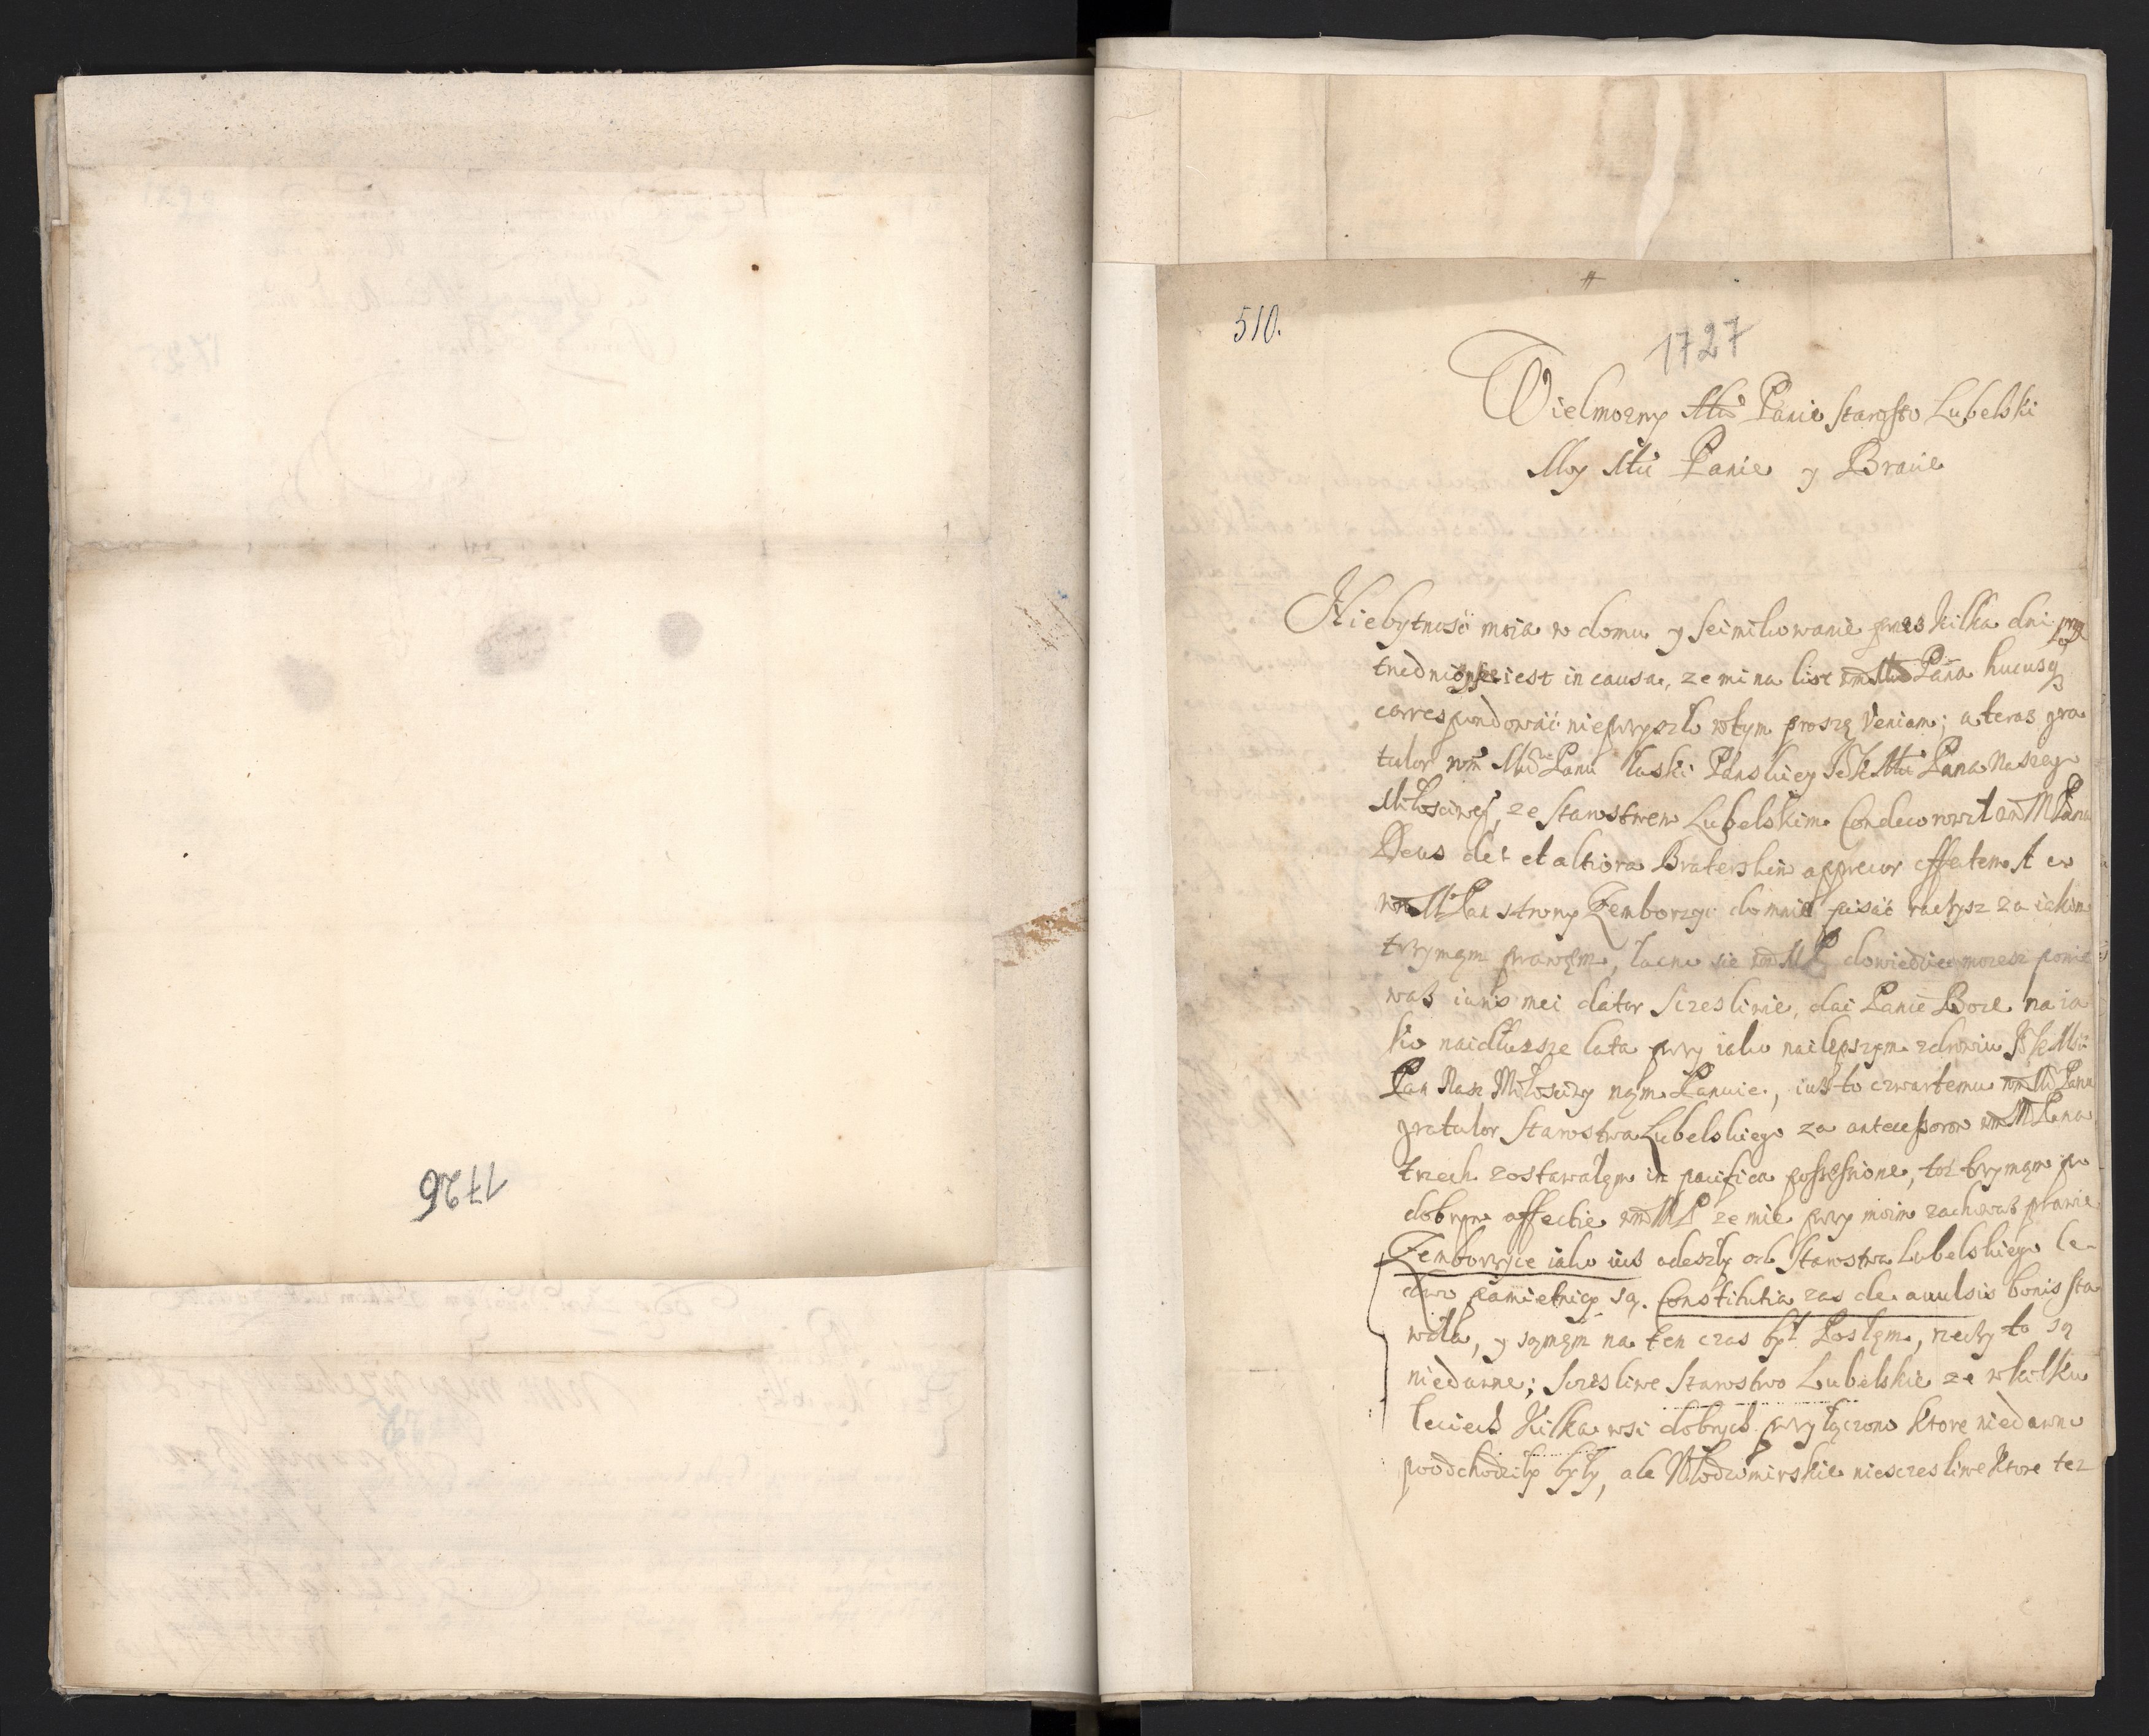 1726
510.
1727
Wielmozny Mći Panie Starosto Lubelski
Moy Mći Panie y Bracie
Niebytnosć moia w domu y Seimikowanie przes kilka dni
iest in causa, ze mi na list WM Pana hucusq
correspondować nieprzyszło wtym proszę Veniam; a teras gra
tulor WM Panu łaski Pańskiey JKMći Pana Naszego
Miłosciwego, ze Starostwem Lubelskim Condecorował WM Pana
Deus det et altiora Braterskim apprecor affectem. A co
WM Pan strony Zemborzyc do mnie pisać raczysz za iakim
trzymam prawem, łacno sie WMP dowiedzieć mozesz ponie
waß iuris mei dator Sczesliwie, dai Panie Boze na ia
ko naidłuzsze lata przy iako nailepszym zdrowiu JKMći
Pan Nasz Miłosciwy nam Panuie, iuß to czwartemu WM Panu
gratulor Starostwa Lubelskiego za antecessorow WM Pana
trzech zostawałem in pacifica possessione, toz trzymam po
dobrym affectie WMP ze mie przy moim zachowaß prawie
Zemborzyce iako iuß odeszły od Starostwa Lubelskiego le-
dwo pamietnicy są. Constitutia zas de avulsis bonis sta
wała, y samem na ten czas był Posłem, rzeczy to są
niedawne; Sczesliwe Starostwo Lubelskie ze w kilku
leciech kilka wsi dobrych przyłączono ktore niedawno
poodchodziły były, ale Włodzimirskie niesczesliwe ktore tez